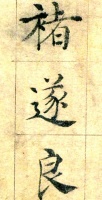 褚遂良